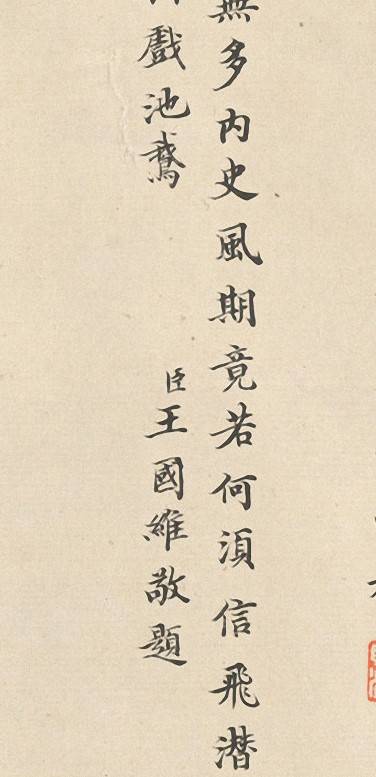 無多內史風期竟若何須信飛潛
戲池鵞
臣王國維敬題